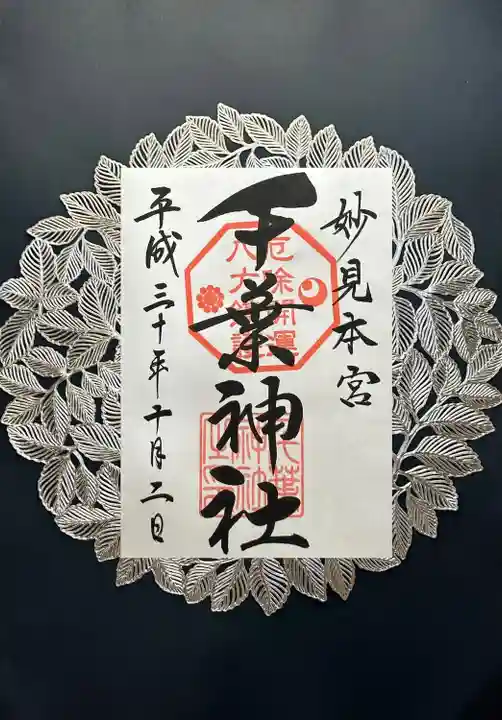 妙見本宮
千葉神社
厄除開運
八方除
平成三十年十月二日